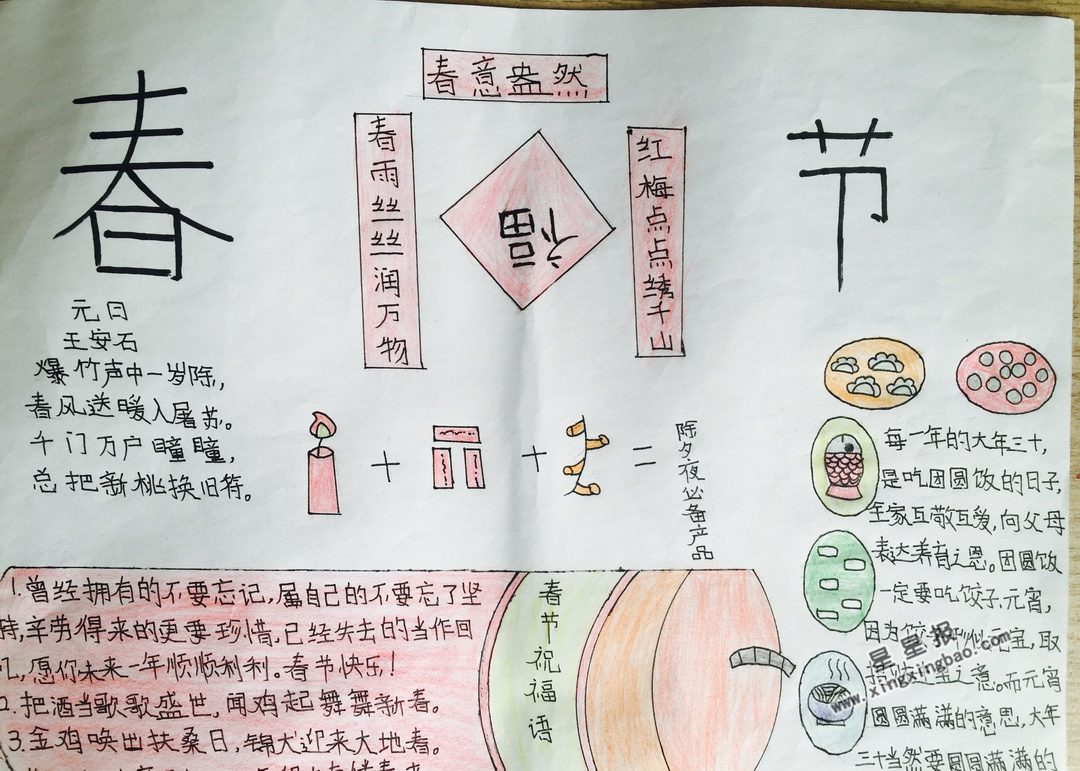 春节
春意盎然
春雨丝丝润万物
红梅点点绣千山
福
元日
王安石
爆竹声中一岁除，
春风送暖入屠苏。
千门万户瞳瞳，
总把新桃换旧符。
+ + =
除夕夜必备产品
每一年的大年三十，
是吃团圆饭的日子，
全家互敬互爱，向父母
表达养育之恩。团圆饭
一定要吃饺子，元宵，
因为饺子 元宝，取
之意。而元宵
圆圆满满的意思，大年
三十当然要圆圆满满的
春节祝福语
1.曾经拥有的不要忘记，属自己的不要忘了坚
持，辛劳得来的更要珍惜，已经失去的当作回
忆，愿你未来一年顺顺利利。春节快乐！
2.把酒当歌歌盛世，闻鸡起舞舞新春。
3.金鸡唤出扶桑日，锦犬迎来大地春。
星星报
www.xingxingbao.com